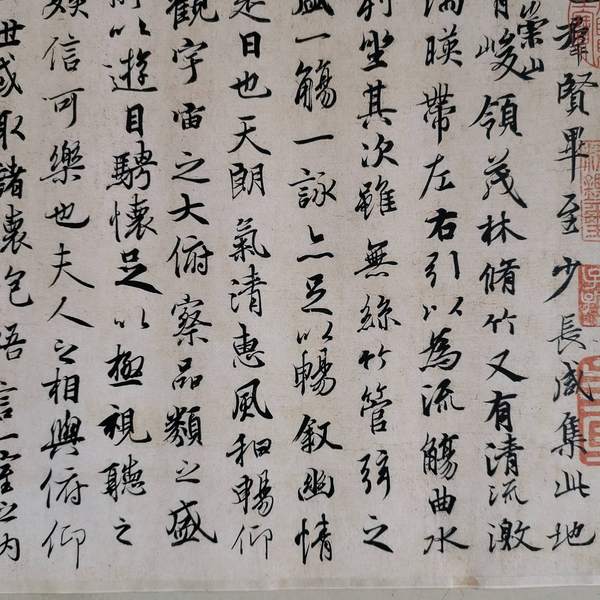 羣賢畢至少長咸集此地
崇山
有峻領茂林脩竹又有清流激
湍暎帶左右引以為流觴曲水
列坐其次雖無絲竹管弦之
盛一觴一詠亦足以暢敘幽情
是日也天朗氣清惠風和暢仰
觀宇宙之大俯察品類之盛
所以遊目騁懷足以極視聽之
娛信可樂也夫人之相與俯仰
世或取諸懷抱悟言一室之內